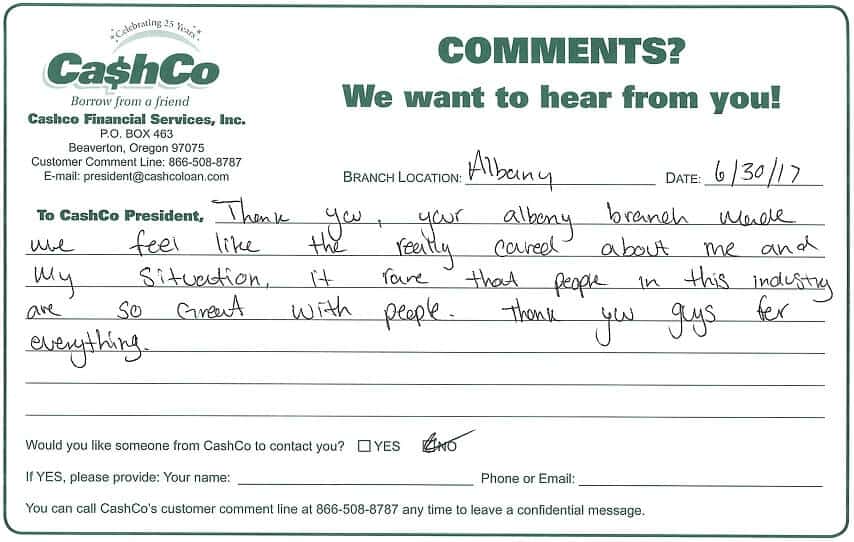 Celebrating 25 Years
Ca$hCo
Borrow from a friend
Cashco Financial Services, Inc.
P.O. BOX 463
Beaverton, Oregon 97075
Customer Comment Line: 866-508-8787
E-mail: president@cashcoloan.com
COMMENTS?
We want to hear from you!
BRANCH LOCATION: Albany DATE: 6/30/17
TO CASHCO PRESIDENT, Thank you, your albany branch made
me feel like the really cared about me and
My situation, it rare that people in this industry
are so Great with people. Thank you guys for
everything.
Would you like someone from CashCo to contact you? YES NO
If YES, please provide: Your name: Phone or Email:
You can call CashCo's customer comment line at 866-508-8787 any time to leave a confidential message.